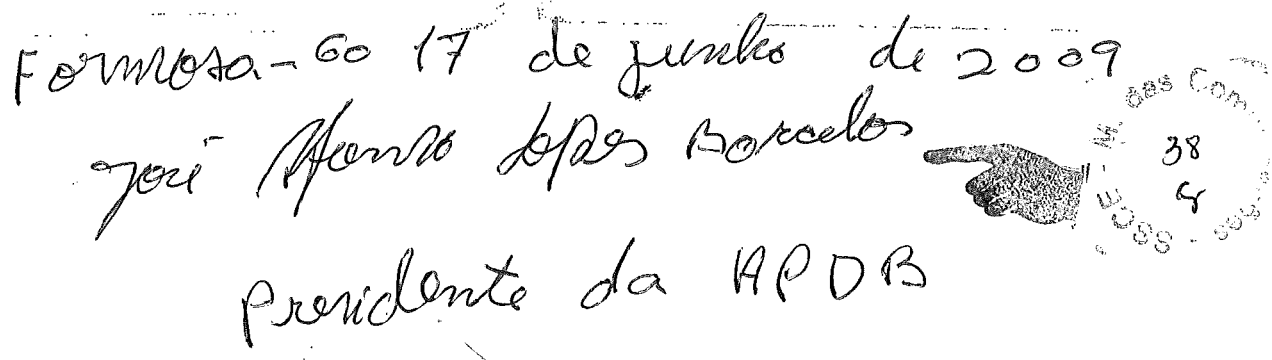 Formosa - GO 17 de junho de 2009
José Afonso Lopes Barcelos
Presidente da APDB
SSCE - M. das Com.
38